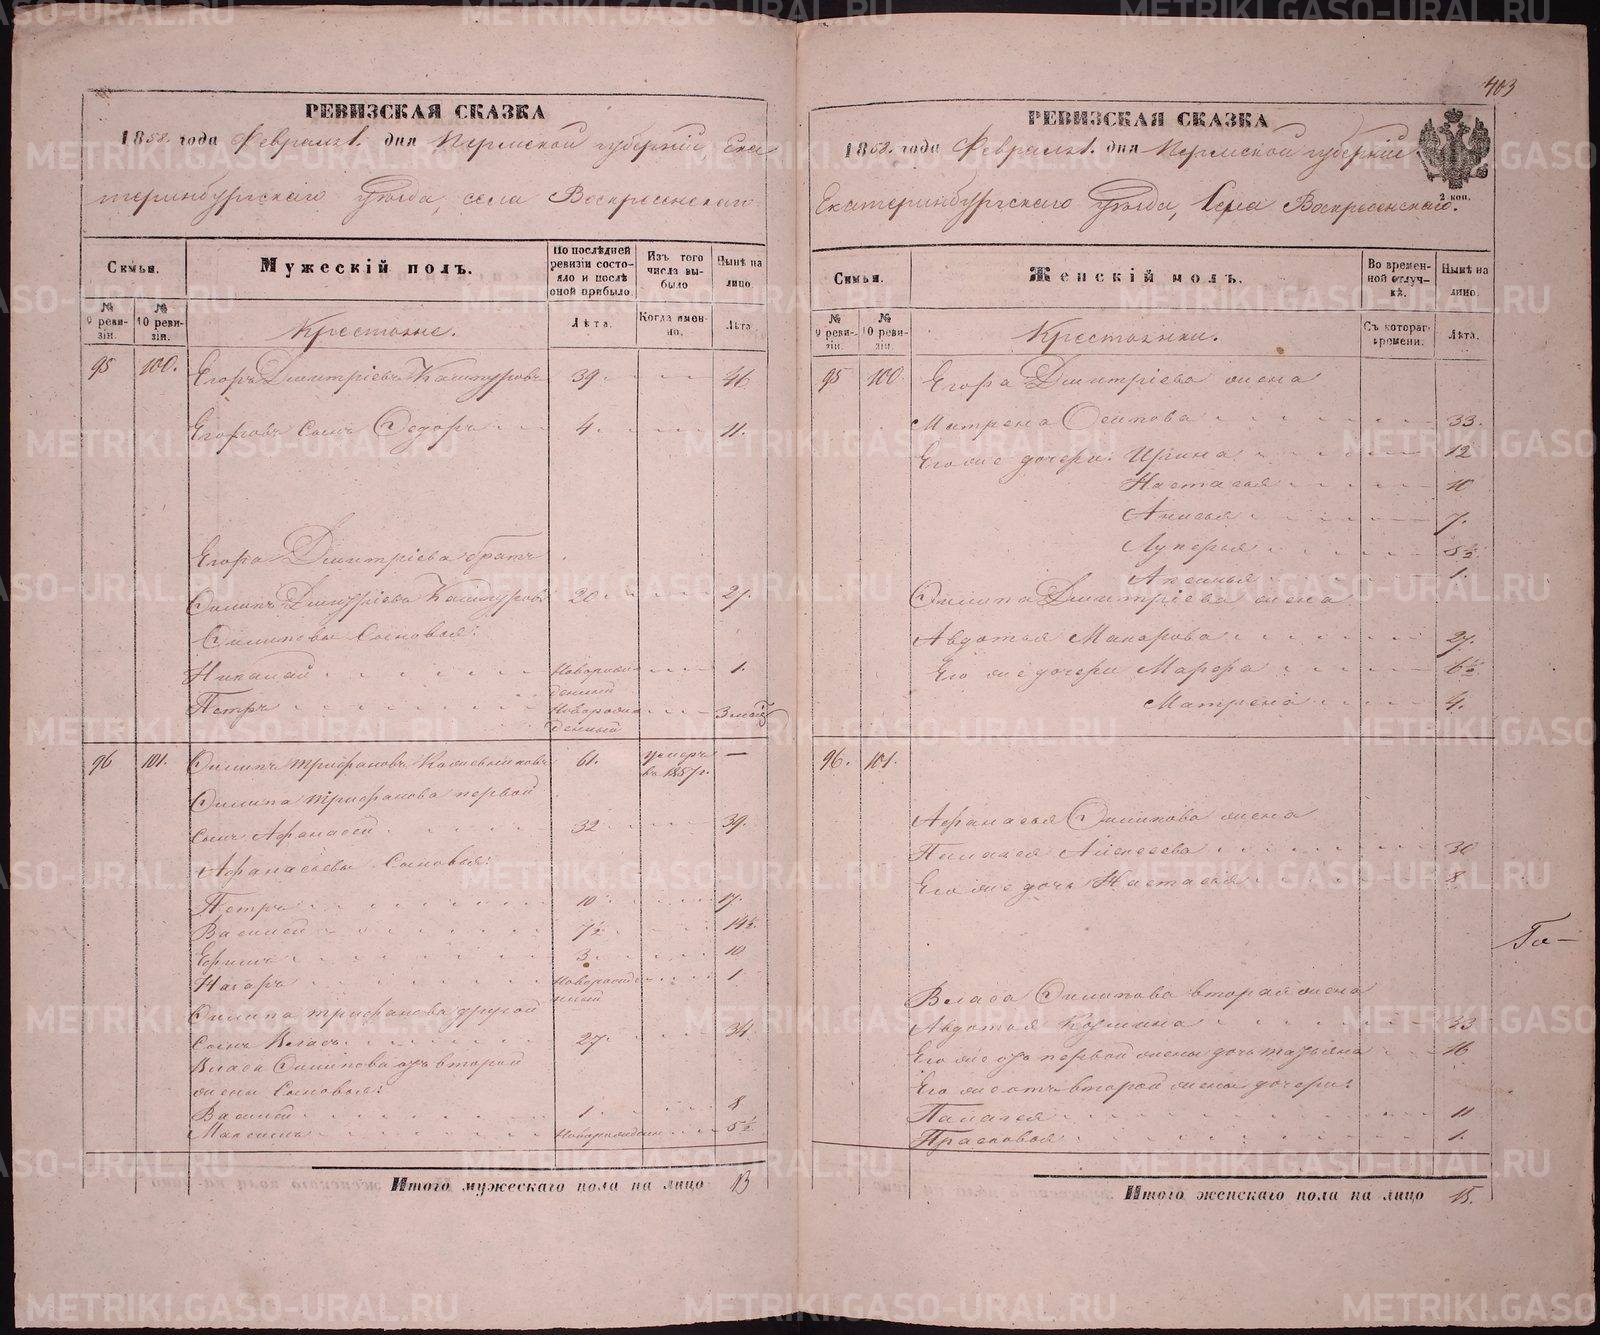 403
РЕВИЗСКАЯ СКАЗКА
1858 года Февраля 1. дня Пермской губерніи, Ека
теринбургскаго уѣзда, села Воскресенскаго
Семьи.
Мужескій полъ.
По послѣдней ревизіи состояло и послѣ оной прибыло.
Изъ того числа выбыло
Нынѣ на лицо.
№ 9 ревизіи.
№ 10 ревизіи.
Крестьяне.
Лѣта.
Когда именно.
Лѣта.
95 100. Егоръ Дмитріевъ 39 46
Егоровъ сынъ Ѳедоръ 4. 11.
Егора Дмитріева братъ
Филипъ Дмитріевъ 20 27.
Филиповы сыновья:
Николай Новорожденный 1.
Петръ Новорожденный 3 мес.
96 101. Филипъ Трифановъ 61. умеръ въ 1857 г. —
Филипа Трифанова первой
сынъ Афанасей 32 39.
Афанасьевы сыновья:
Петръ 10 17.
Василей 7½ 14½
Ефимъ 3. 10
Назаръ Новорожденный 1.
Филипа Трифанова другой
сынъ Власъ 27. 34.
Власа Филипова отъ второй
жены сыновья:
Василей 1 8
Максимъ Новорожденный 5½
Итого мужескаго пола на лицо 13
РЕВИЗСКАЯ СКАЗКА
1858. года Февраля 1. дня Пермской губерніи
Екатеринбургскаго уѣзда, села Воскресенскаго.
2 коп.
Семьи.
Женскій полъ.
Во временной отлучкѣ.
Нынѣ на лицо.
№ 9 ревизіи.
№ 10 ревизіи.
Крестьянки.
Съ котораго времени.
Лѣта.
95 100. Егора Дмитріева жена
Матрена Осипова 33.
Его же дочери: Ирина 12
Настасья 10
Анисья 7.
Луперья 5½
Аксинья 1.
Филипа Дмитріева жена
Авдотья Макарова 27.
Его же дочери Марфа 6½
Матрена 4.
96. 101.
Афанасья Филипова жена
Палагея Алексеева 30
Его же дочь Настасья 8
Власа Филипова вторая жена
Авдотья Козмина 33
Его же отъ первой жены дочь Татьяна 16
Его же отъ второй жены дочери:
Палагея 11
Прасковья 1.
Итого женскаго пола на лицо 15.
METRIKI.GASO-URAL.RU